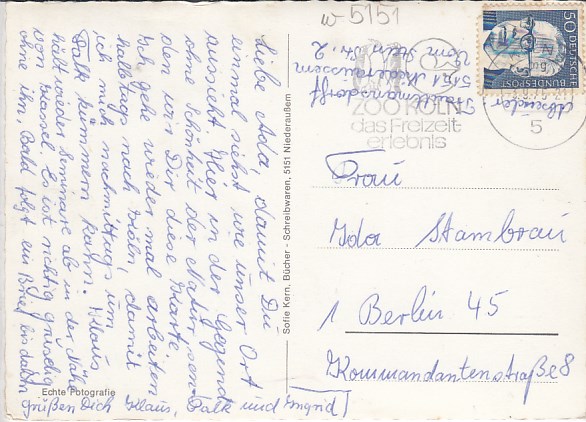 w-5151
50
DEUTSCHE BUNDESPOST
Absender
Trautmannsdorff
5151 Niederaussem
Vom Stein Str. 2
ZOO KÖLN
das Freizeit-
erlebnis
5
Liebe Ada, damit Du
einmal siehst wie unser Ort
aussieht. Hier in der Gegend
ohne Schönheit der Natur sen-
den wir Dir diese Karte.
Ich gehe wieder mal arbeiten
halbtags nach Köln, damit
ich mich nachmittags um
Falk kümmern kann. Klaus
hält wieder Seminare ab in der Nähe
von Kassel. Es ist richtig gruselig
ohne ihn. Bald folgt ein Brief bis dahin
grüßen Dich Klaus, Falk und Ingrid
Echte Fotografie
Sofie Kern, Bücher - Schreibwaren, 5151 Niederaußem
Frau
Ida Stambrau
1 Berlin 45
Kommandantenstraße 8